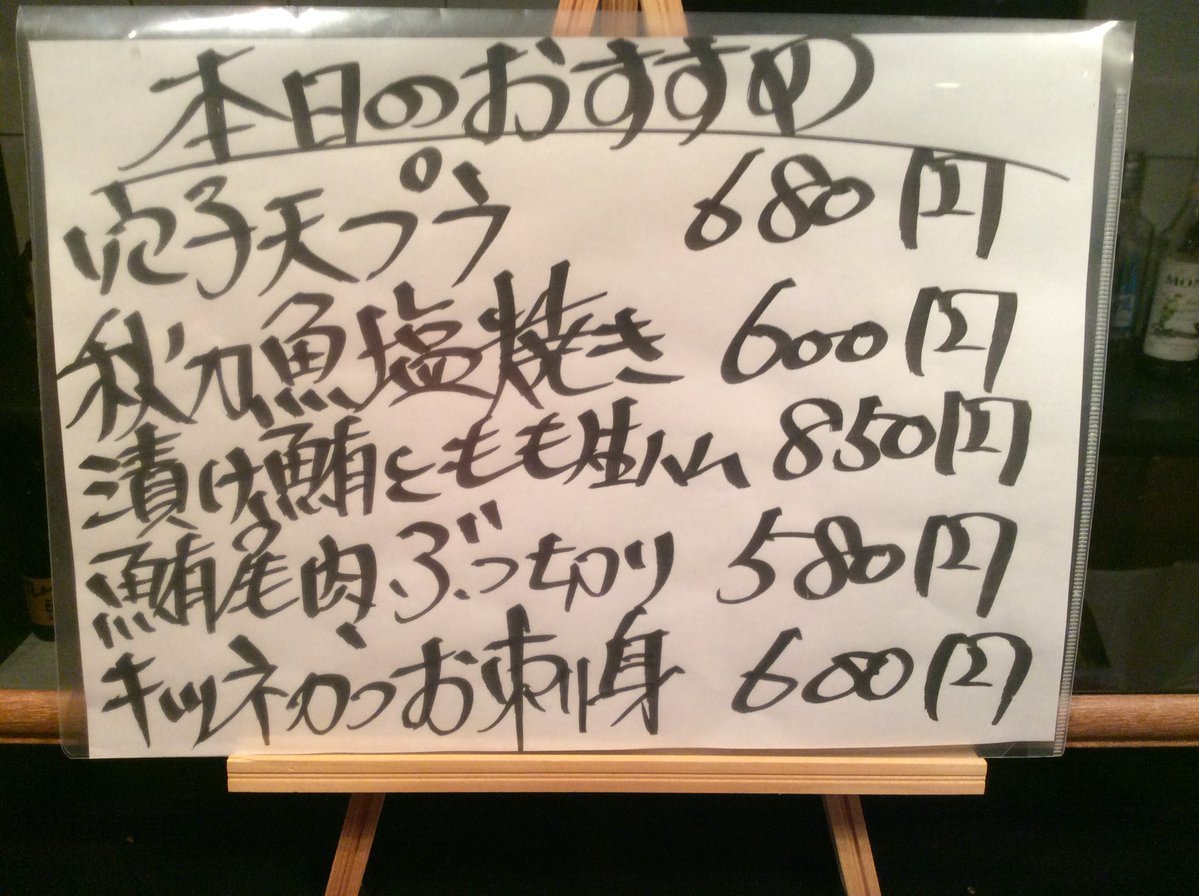 本日のおすすめ
穴子天プラ 680円
秋刀魚塩焼き 600円
漬け鮪ともも生ハム 850円
鮪尾肉ぶっ切り 580円
キツネかつお刺身 680円